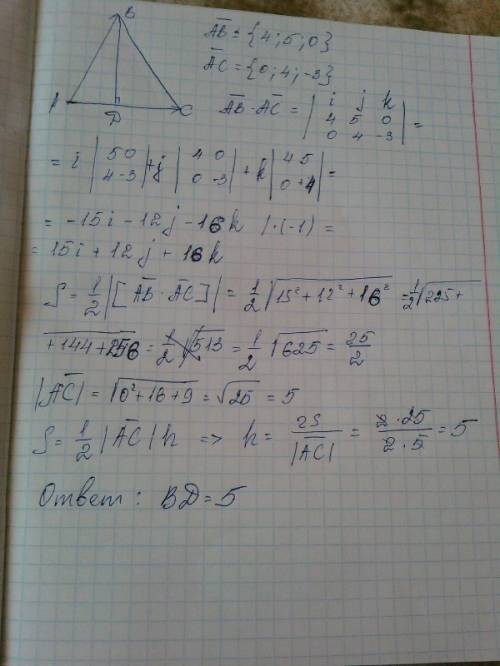 B
A
D
C
AB = {4; 5; 0}
AC = {0; 4; -3}
AB · AC = | i j k |
4 5 0
0 4 -3 | =
= i | 5 0 | + j | 4 0 | + k | 4 5 | =
4 -3 0 -3 0 +4
= -15i - 12j - 16k | · (-1) =
= 15i + 12j + 16k
S = 1/2 |[AB · AC]| = 1/2 √15² + 12² + 16² = 1/2 √225 +
+ 144 + 256 = 1/2 √513 = 1/2 √625 = 25/2
|AC| = √0² + 16 + 9 = √25 = 5
S = 1/2 |AC| h => h = 2S/|AC| = 2·25/2·5 = 5
Ответ: BD = 5